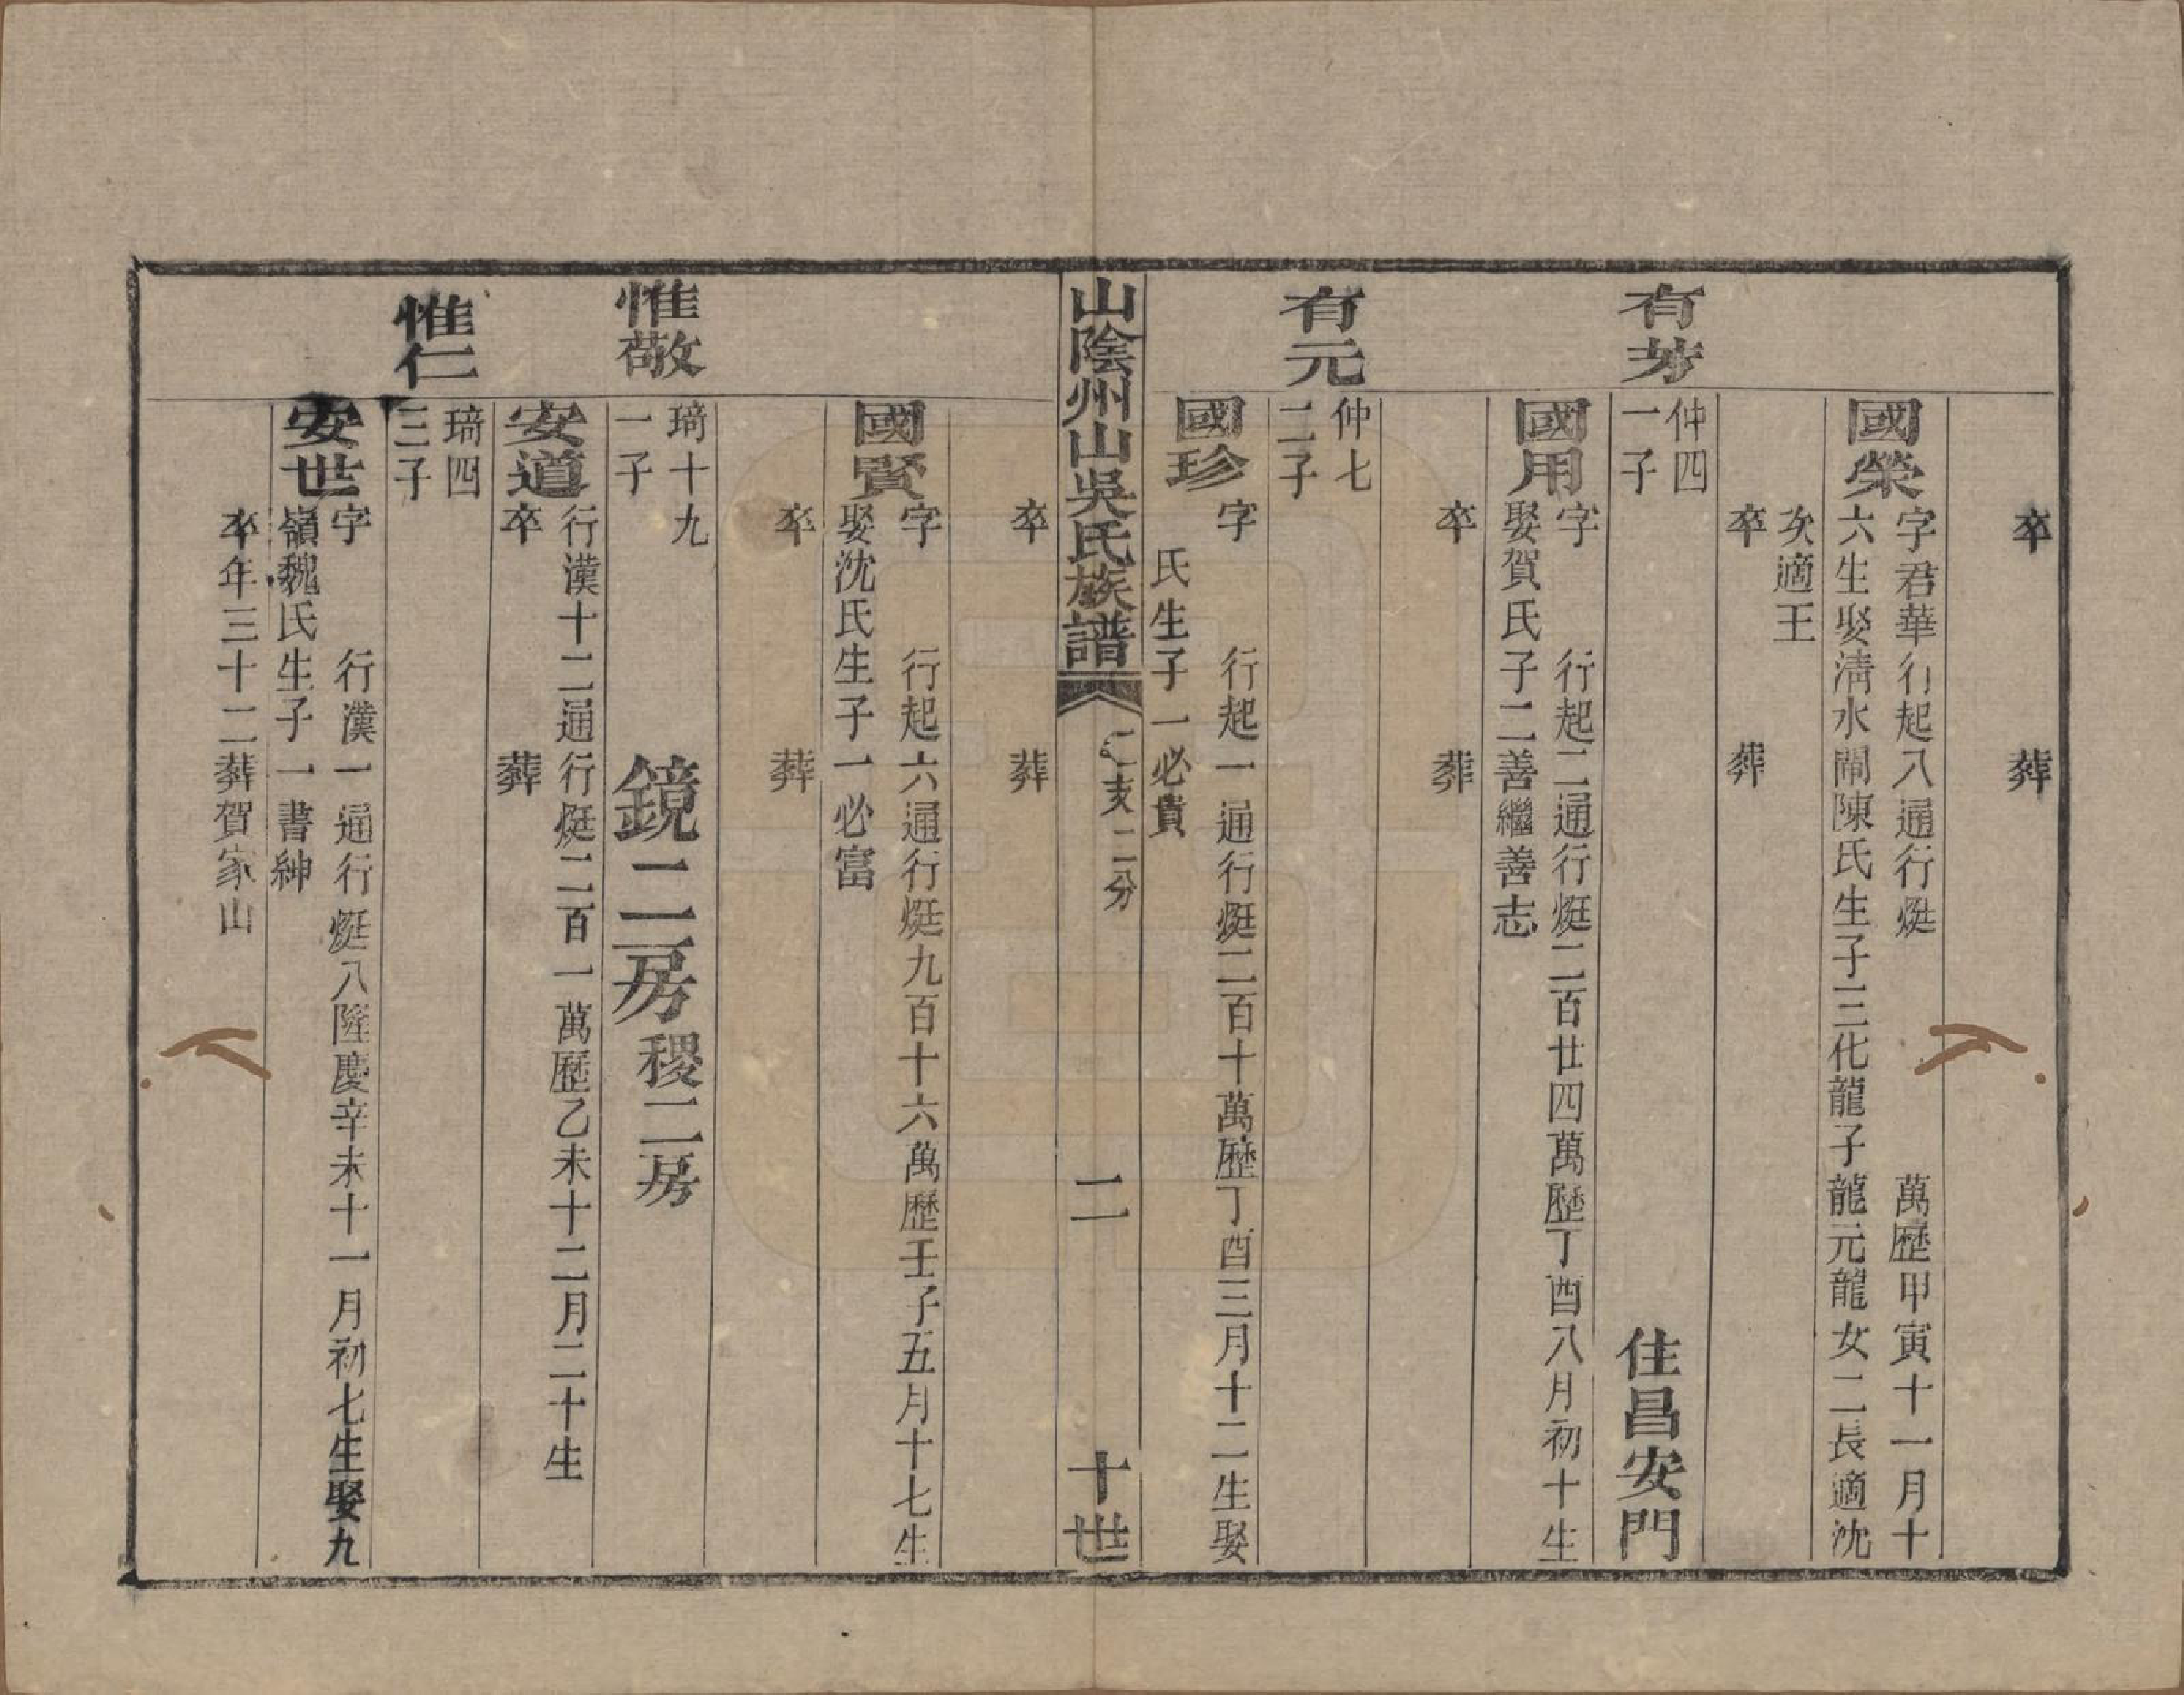 卒　葬
國榮
字君華行起八通行烶　萬歷甲寅十一月十
六生娶清水閘陳氏生子三化龍子龍元龍女二長適沈
次適王
卒　葬
有芳
仲四
一子
住昌安門
國用
字　行起二通行烶二百廿四萬歷丁酉八月初十生
娶賀氏子二善繼善志
卒　葬
有元
仲七
二子
國珍
字　行起一通行烶二百十萬歷丁酉三月十二生娶
氏生子一必貴
山陰州山吳氏族譜
支二分
二
十世
卒　葬
國賢
字　行起六通行烶九百十六萬歷壬子五月十七生
娶沈氏生子一必富
卒　葬
惟敬
琦十九
一子
鏡二房稷二房
安道
行漢十二通行烶二百一萬歷乙未十二月二十生
卒　葬
惟仁
琦四
三子
安世
字　行漢一通行烶八隆慶辛未十一月初七生娶九
嶺魏氏生子一書紳
卒年三十二葬賀家山